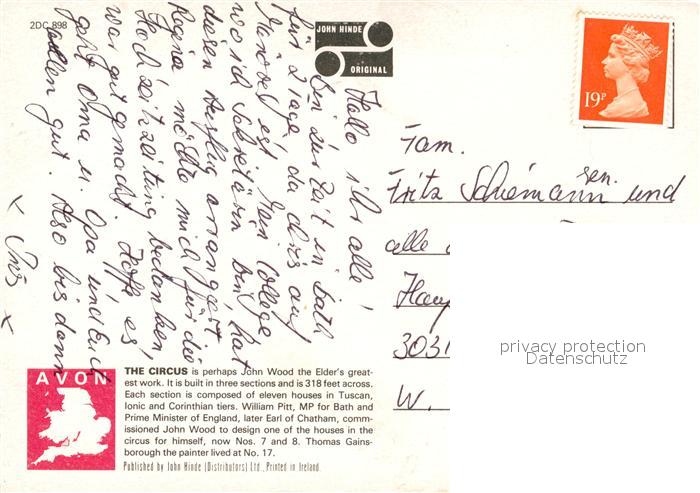 2DC 898
JOHN HINDE
ORIGINAL
19P
Hallo ihr alle!
Bin zur Zeit in Bath
für 2 Tage, da Chris auf
ist. Mein College
wo ich Sekretärin bin, hat
diesen Ausflug arrangiert.
Regina möchte mich für die
Hochzeitzeitung bedanken,
war gut gemacht. Hoffe es
geht Oma u. Opa und Euch
allen gut. Also bis dann
x Ines x
Fam.
Fritz Schiemann sen. und
alle
Hau
3031
W.
privacy protection
Datenschutz
AVON
THE CIRCUS is perhaps John Wood the Elder's great-
est work. It is built in three sections and is 318 feet across.
Each section is composed of eleven houses in Tuscan,
Ionic and Corinthian tiers. William Pitt, MP for Bath and
Prime Minister of England, later Earl of Chatham, comm-
issioned John Wood to design one of the houses in the
circus for himself, now Nos. 7 and 8. Thomas Gains-
borough the painter lived at No. 17.
Published by John Hinde (Distributors) Ltd., Printed in Ireland.